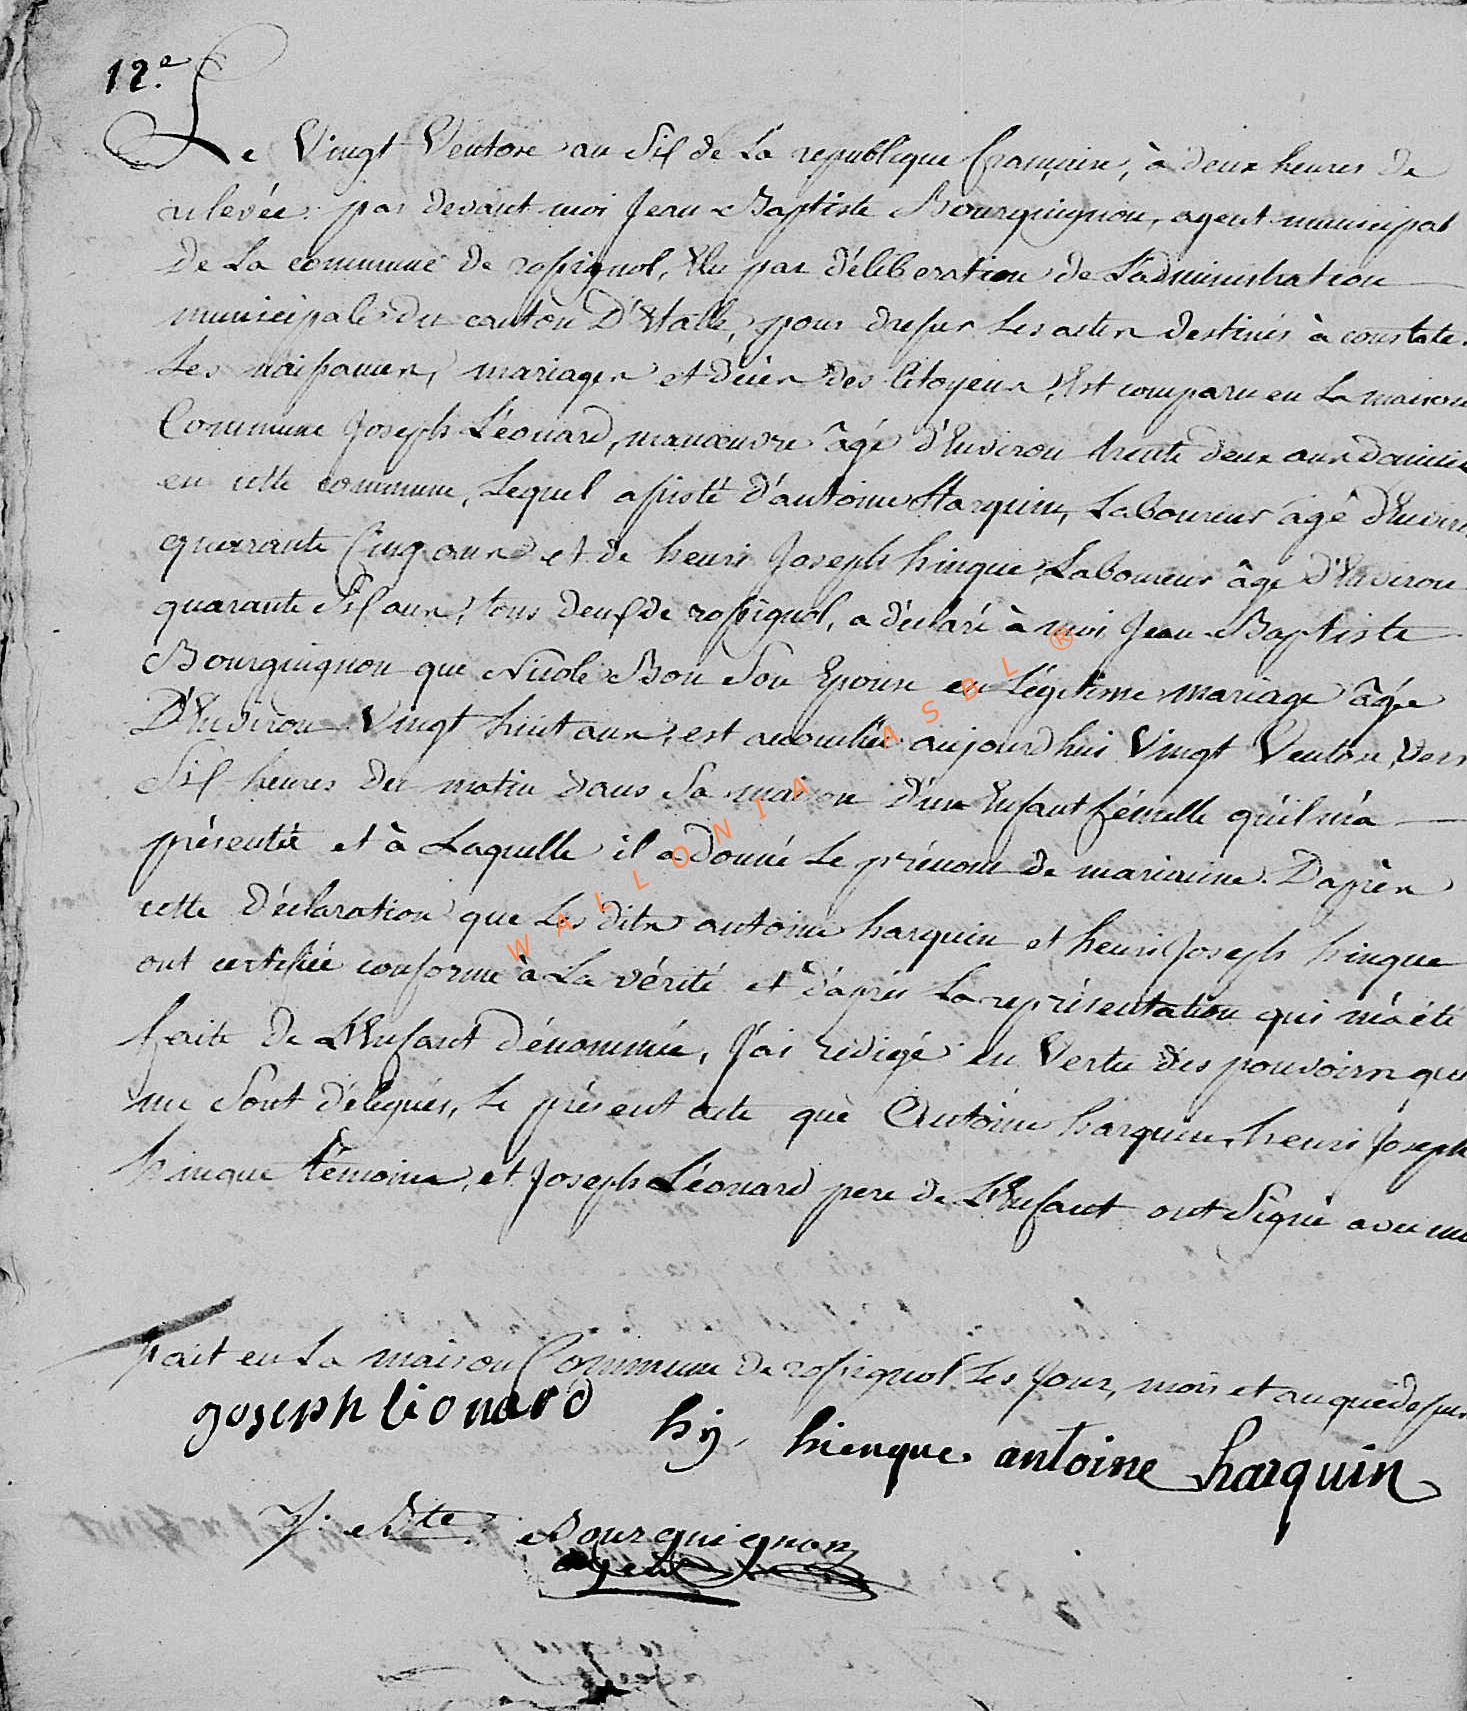 12.e
Le Vingt Ventose an Six de La republique française, à deux heures de
relevée par devant moi Jean Baptiste Bourguignon, agent municipal
de La commune de rossignol, Elu par déliberation de L'administration
municipale du canton D'Etalle, pour dresser Les actes destinés à constate
Les naissances, mariages et décès des Citoyens, Est comparu en La maison
Commune Joseph Léonard, manœuvre âgé d'Environ trente deux ans Domicil
en cette commune, Lequel assisté d'antoine Harquin, Laboureur âgé d'Enviro
quarante Cinq ans et de henri Joseph hinque Laboureur âgé d'Environ
quarante Six ans, tous deux de rossignol, a déclaré à moi Jean Baptiste
Bourguignon que Nicole Bon Son Epouse en Légitime mariage âgée
D'Environ Vingt huit ans, est accouchée aujourd'hui Vingt Ventose, vers
Six heures du matin dans Sa maison d'un Enfant fémelle qu'il m'a
présenté et à Laquelle il a donné Le prénom de marianne. D'après
cette déclaration que Les dits antoine harquin et henri Joseph hinque
ont certifiée conforme à La vérité et d'après La représentation qui m'a été
faite de L'Enfant dénommée, J'ai rédigé en Vertu des pouvoirs qui
me Sont délégués, Le présent acte que Antoine harquin, henri Joseph
hinque témoins, et Joseph Léonard pere de L'Enfant ont Signé avec moi
fait en La maison Commune de rossignol Les Jour, mois et an que dessus
joseph léonard hj. hienque antoine harquin
J. Bte. Bourguignon
agent
WALLONIA ASBL ®